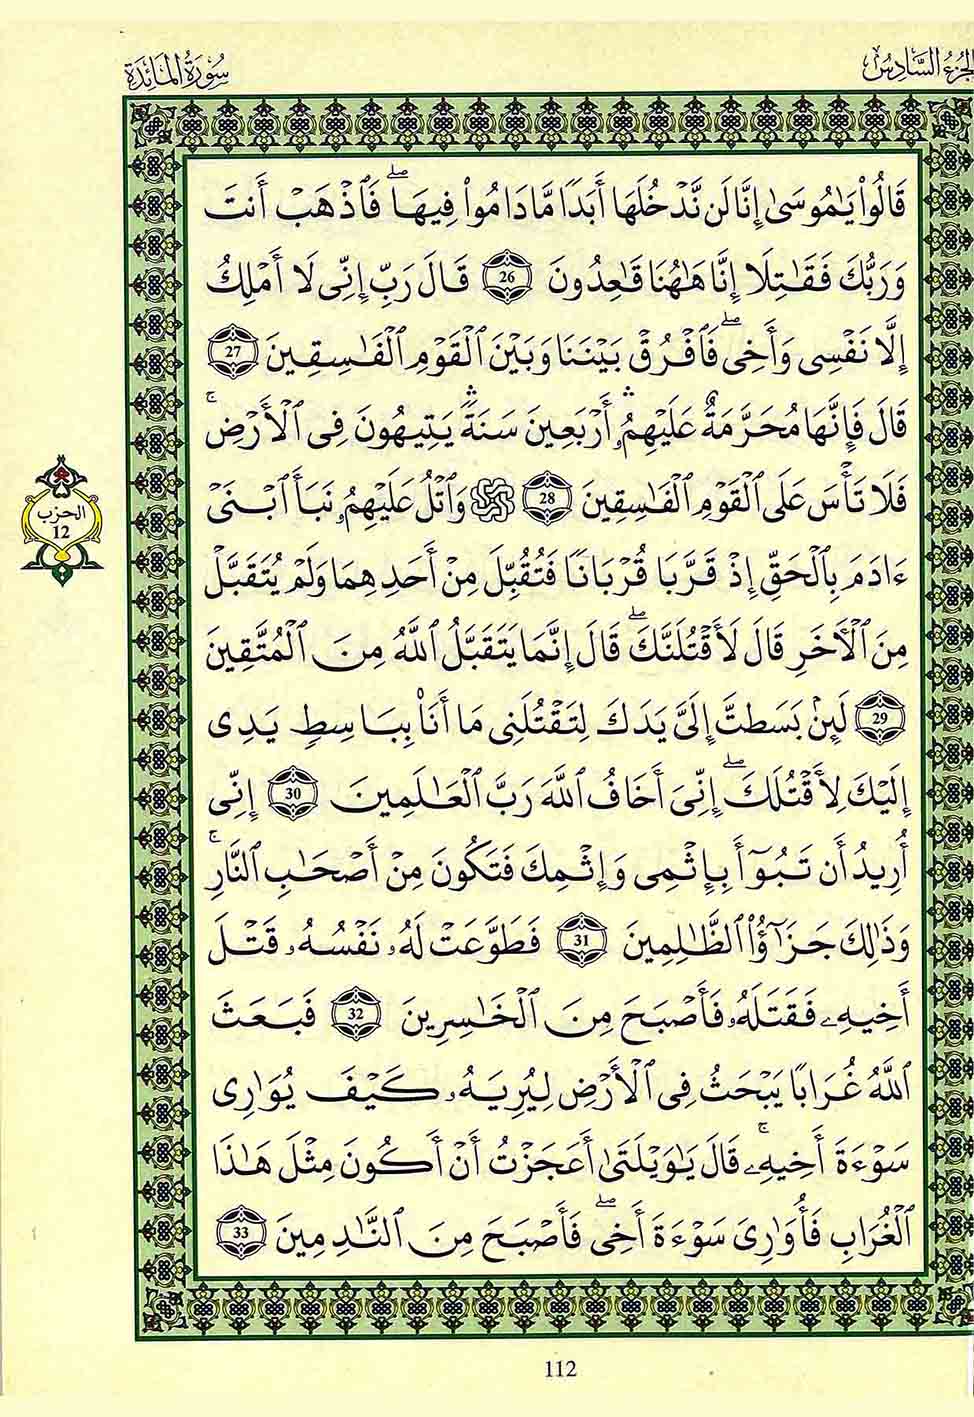 الجزء السادس
سورة المائدة
قَالُوا۟ يَـٰمُوسَىٰٓ إِنَّا لَن نَّدْخُلَهَآ أَبَدًا مَّا دَامُوا۟ فِيهَا ۖ فَٱذْهَبْ أَنتَ
وَرَبُّكَ فَقَـٰتِلَآ إِنَّا هَـٰهُنَا قَـٰعِدُونَ 26 قَالَ رَبِّ إِنِّى لَآ أَمْلِكُ
إِلَّا نَفْسِى وَأَخِى ۖ فَٱفْرُقْ بَيْنَنَا وَبَيْنَ ٱلْقَوْمِ ٱلْفَـٰسِقِينَ 27
قَالَ فَإِنَّهَا مُحَرَّمَةٌ عَلَيْهِمُۥٓ ۛ أَرْبَعِينَ سَنَةً ۛ يَتِيهُونَ فِى ٱلْأَرْضِ ۚ
فَلَا تَأْسَ عَلَى ٱلْقَوْمِ ٱلْفَـٰسِقِينَ 28 وَٱتْلُ عَلَيْهِمُۥ نَبَأَ ٱبْنَىْ
ءَادَمَ بِٱلْحَقِّ إِذْ قَرَّبَا قُرْبَانًا فَتُقُبِّلَ مِنْ أَحَدِهِمَا وَلَمْ يُتَقَبَّلْ
مِنَ ٱلْـَٔاخَرِ قَالَ لَأَقْتُلَنَّكَ ۖ قَالَ إِنَّمَا يَتَقَبَّلُ ٱللَّهُ مِنَ ٱلْمُتَّقِينَ
29 لَئِنۢ بَسَطتَ إِلَىَّ يَدَكَ لِتَقْتُلَنِى مَآ أَنَا۠ بِبَاسِطٍ يَدِى
إِلَيْكَ لِأَقْتُلَكَ ۖ إِنِّىٓ أَخَافُ ٱللَّهَ رَبَّ ٱلْعَـٰلَمِينَ 30 إِنِّىٓ
أُرِيدُ أَن تَبُوٓأَ بِإِثْمِى وَإِثْمِكَ فَتَكُونَ مِنْ أَصْحَـٰبِ ٱلنَّارِ ۚ
وَذَٰلِكَ جَزَٰٓؤُا۟ ٱلظَّـٰلِمِينَ 31 فَطَوَّعَتْ لَهُۥ نَفْسُهُۥ قَتْلَ
أَخِيهِۦ فَقَتَلَهُۥ فَأَصْبَحَ مِنَ ٱلْخَـٰسِرِينَ 32 فَبَعَثَ
ٱللَّهُ غُرَابًا يَبْحَثُ فِى ٱلْأَرْضِ لِيُرِيَهُۥ كَيْفَ يُوَٰرِى
سَوْءَةَ أَخِيهِ ۚ قَالَ يَـٰوَيْلَتَىٰٓ أَعَجَزْتُ أَنْ أَكُونَ مِثْلَ هَـٰذَا
ٱلْغُرَابِ فَأُوَٰرِىَ سَوْءَةَ أَخِى ۖ فَأَصْبَحَ مِنَ ٱلنَّـٰدِمِينَ 33
الحزب
12
112